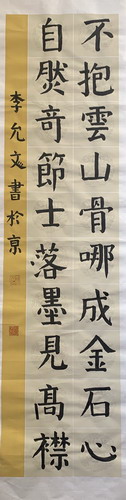 不抱雲山骨哪成金石心
自然奇節士落墨見高襟
李允文書於京